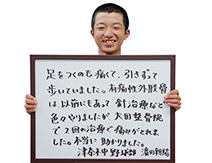 足をつくのも痛くて、引きずって
歩いていました。有痛性外脛骨
は以前にもあって針治療など
色々やりましたが大田整骨院
で2回の治療で痛みがとれま
した。本当に助かりました。
津奈木中野球部